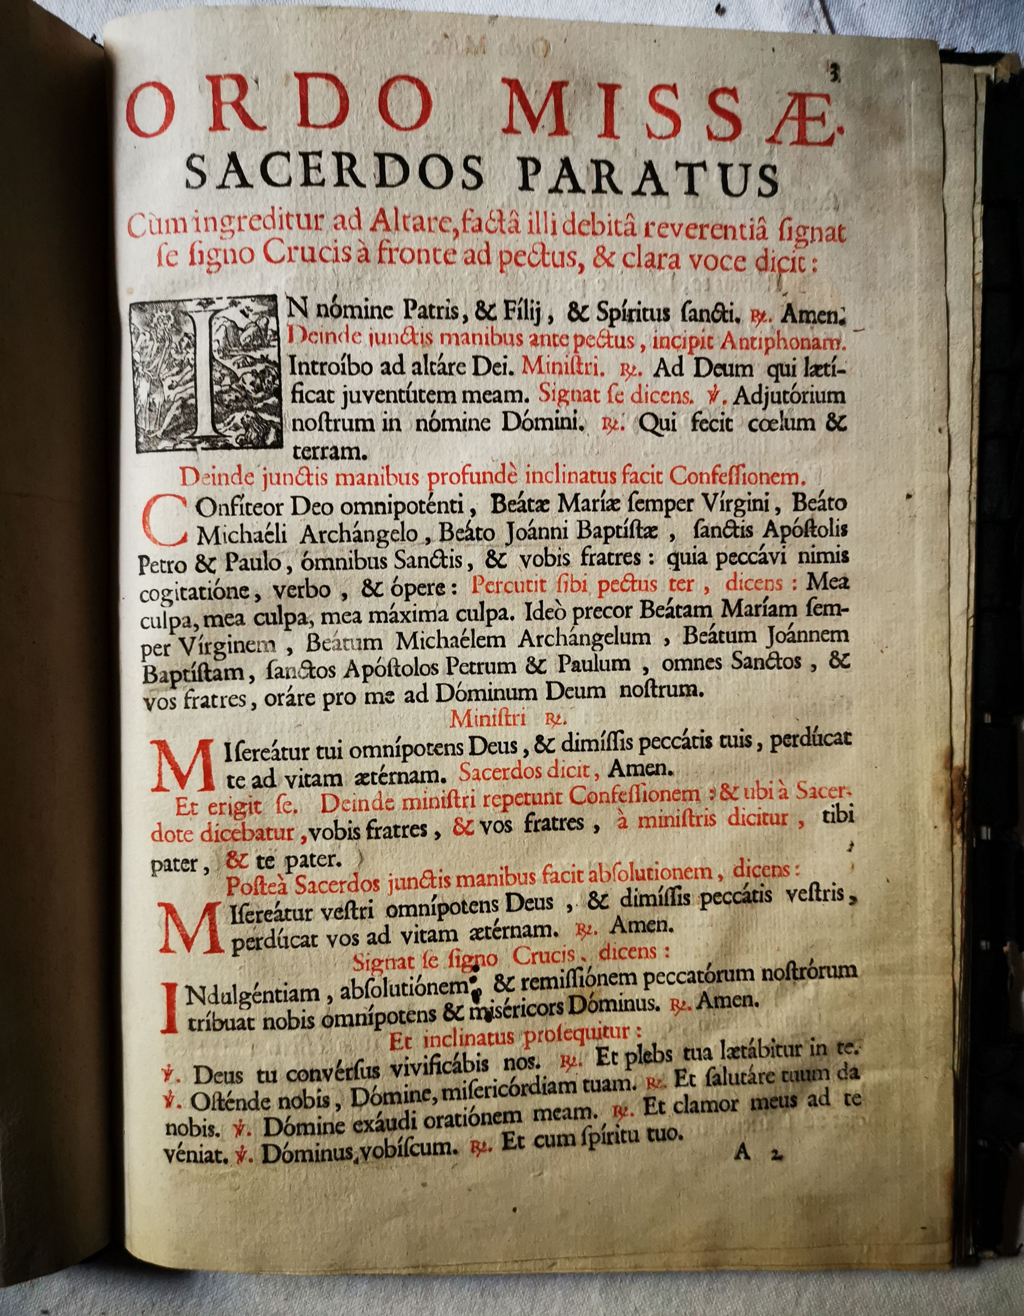 3
ORDO MISSÆ.
SACERDOS PARATUS
Cùm ingreditur ad Altare, factâ illi debitâ reverentiâ ſignat
ſe ſigno Crucis à fronte ad pectus, & clara voce dicit:
IN nómine Patris, & Fílij, & Spíritus ſancti. ℟. Amen.
Deinde junctis manibus ante pectus, incipit Antiphonam.
Introíbo ad altáre Dei. Miniſtri. ℟. Ad Deum qui lætí-
ficat juventútem meam. Signat ſe dicens. ℣. Adjutórium
noſtrum in nómine Dómini. ℟. Qui fecit cœlum &
terram.
Deinde junctis manibus profundè inclinatus facit Confeſſionem.
COnfíteor Deo omnipoténti, Beátæ Maríæ ſemper Vírgini, Beáto
Michaéli Archángelo, Beáto Joánni Baptíſtæ, ſanctis Apóſtolis
Petro & Paulo, ómnibus Sanctis, & vobis fratres: quia peccávi nimis
cogitatióne, verbo, & ópere: Percutit ſibi pectus ter, dicens: Mea
culpa, mea culpa, mea máxima culpa. Ideò precor Beátam Maríam ſem-
per Vírginem, Beátum Michaélem Archángelum, Beátum Joánnem
Baptíſtam, ſanctos Apóſtolos Petrum & Paulum, omnes Sanctos, &
vos fratres, oráre pro me ad Dóminum Deum noſtrum.
Miniſtri ℟.
MIſereátur tui omnípotens Deus, & dimíſſis peccátis tuis, perdúcat
te ad vitam ætérnam. Sacerdos dicit, Amen.
Et erigit ſe. Deinde miniſtri repetunt Confeſſionem: & ubi à Sacer-
dote dicebatur, vobis fratres, & vos fratres, à miniſtris dicitur, tibi
pater, & te pater.
Poſteà Sacerdos junctis manibus facit abſolutionem, dicens:
MIſereátur veſtri omnípotens Deus, & dimíſſis peccátis veſtris,
perdúcat vos ad vitam ætérnam. ℟. Amen.
Signat ſe ſigno Crucis, dicens:
INdulgéntiam, abſolutiónem, & remiſſiónem peccatórum noſtrórum
tríbuat nobis omnípotens & miséricors Dóminus. ℟. Amen.
Et inclinatus proſequitur:
℣. Deus tu convérſus vivificábis nos. ℟. Et plebs tua lætábitur in te.
℣. Oſténde nobis, Dómine, miſericórdiam tuam. ℟. Et ſalutáre tuum da
nobis. ℣. Dómine exáudi oratiónem meam. ℟. Et clamor meus ad te
véniat. ℣. Dóminus vobíſcum. ℟. Et cum ſpíritu tuo.
A 2